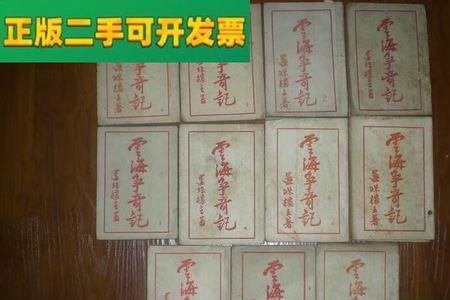 正版二手可开发票
爭奇記
還珠樓主著
爭奇記
還珠樓主著
雲海爭奇記
還珠樓主著
雲海爭奇記
還珠樓主著
雲海爭奇記
還珠樓主著
雲海爭奇記
還珠樓主著
雲海爭奇記
還珠樓主著
雲海爭奇記
還珠樓主著
雲海
雲海
雲海